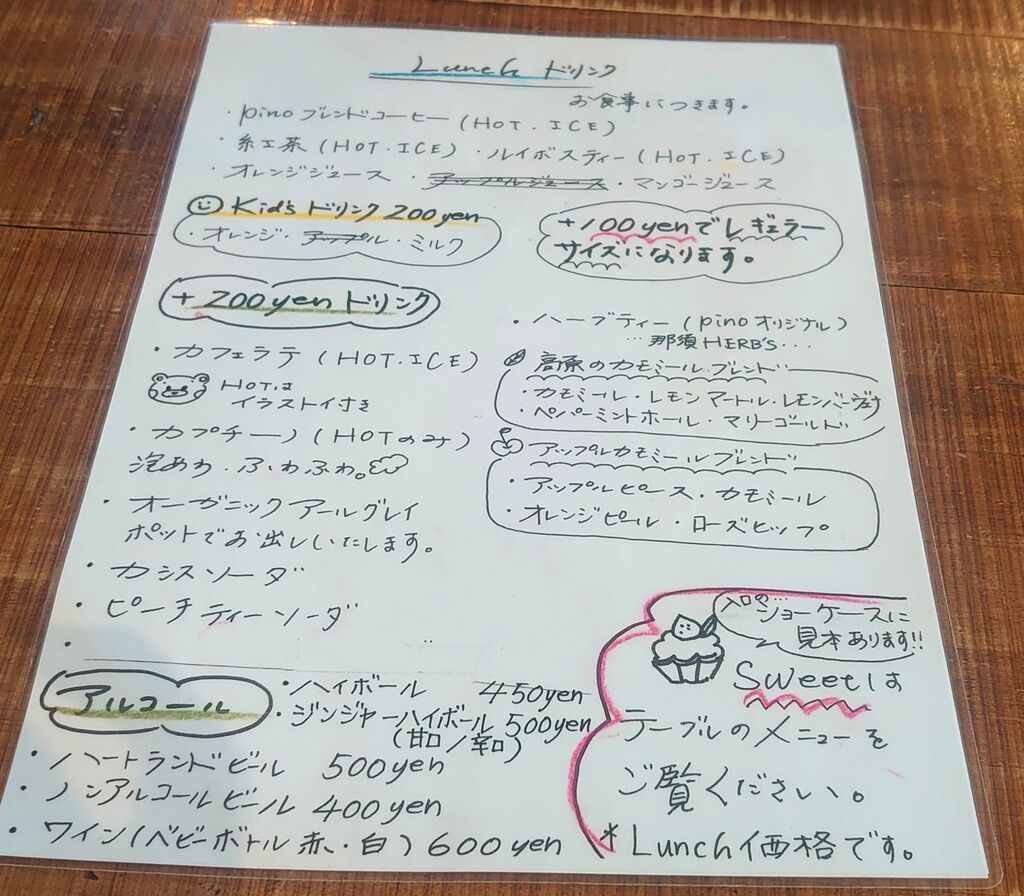 Lunch ドリンク
お食事につきます。
・pinoブレンドコーヒー(HOT・ICE)
・紅茶(HOT・ICE)・ルイボスティー(HOT・ICE)
・オレンジジュース ・アップルジュース ・マンゴージュース
Kid's ドリンク 200yen
・オレンジ・アップル・ミルク
+100yenでレギュラー
サイズになります。
+200yenドリンク
・カフェラテ(HOT・ICE)
HOTは
イラスト付き
・カプチーノ(HOTのみ)
泡あわ・ふわふわ。
・オーガニックアールグレイ
ポットでお出しいたします。
・カシスソーダ
・ピーチティーソーダ
・
・ハーブティー(pinoオリジナル)
…那須HERB'S...
高原のカモミールブレンド
・カモミール・レモンマートル・レモンバーヴェナ
・ペパーミントホール・マリーゴールド
アップルカモミールブレンド
・アップルピース・カモミール
・オレンジピール・ローズヒップ
アルコール
・ハイボール 450yen
・ジンジャーハイボール 500yen
(甘口/辛口)
・ハートランドビール 500yen
・ノンアルコールビール 400yen
・ワイン(ベビーボトル赤・白)600yen
入口の…
ショーケースに
見本あります!!
Sweetは
テーブルのメニューを
ご覧ください。
*Lunch価格です。